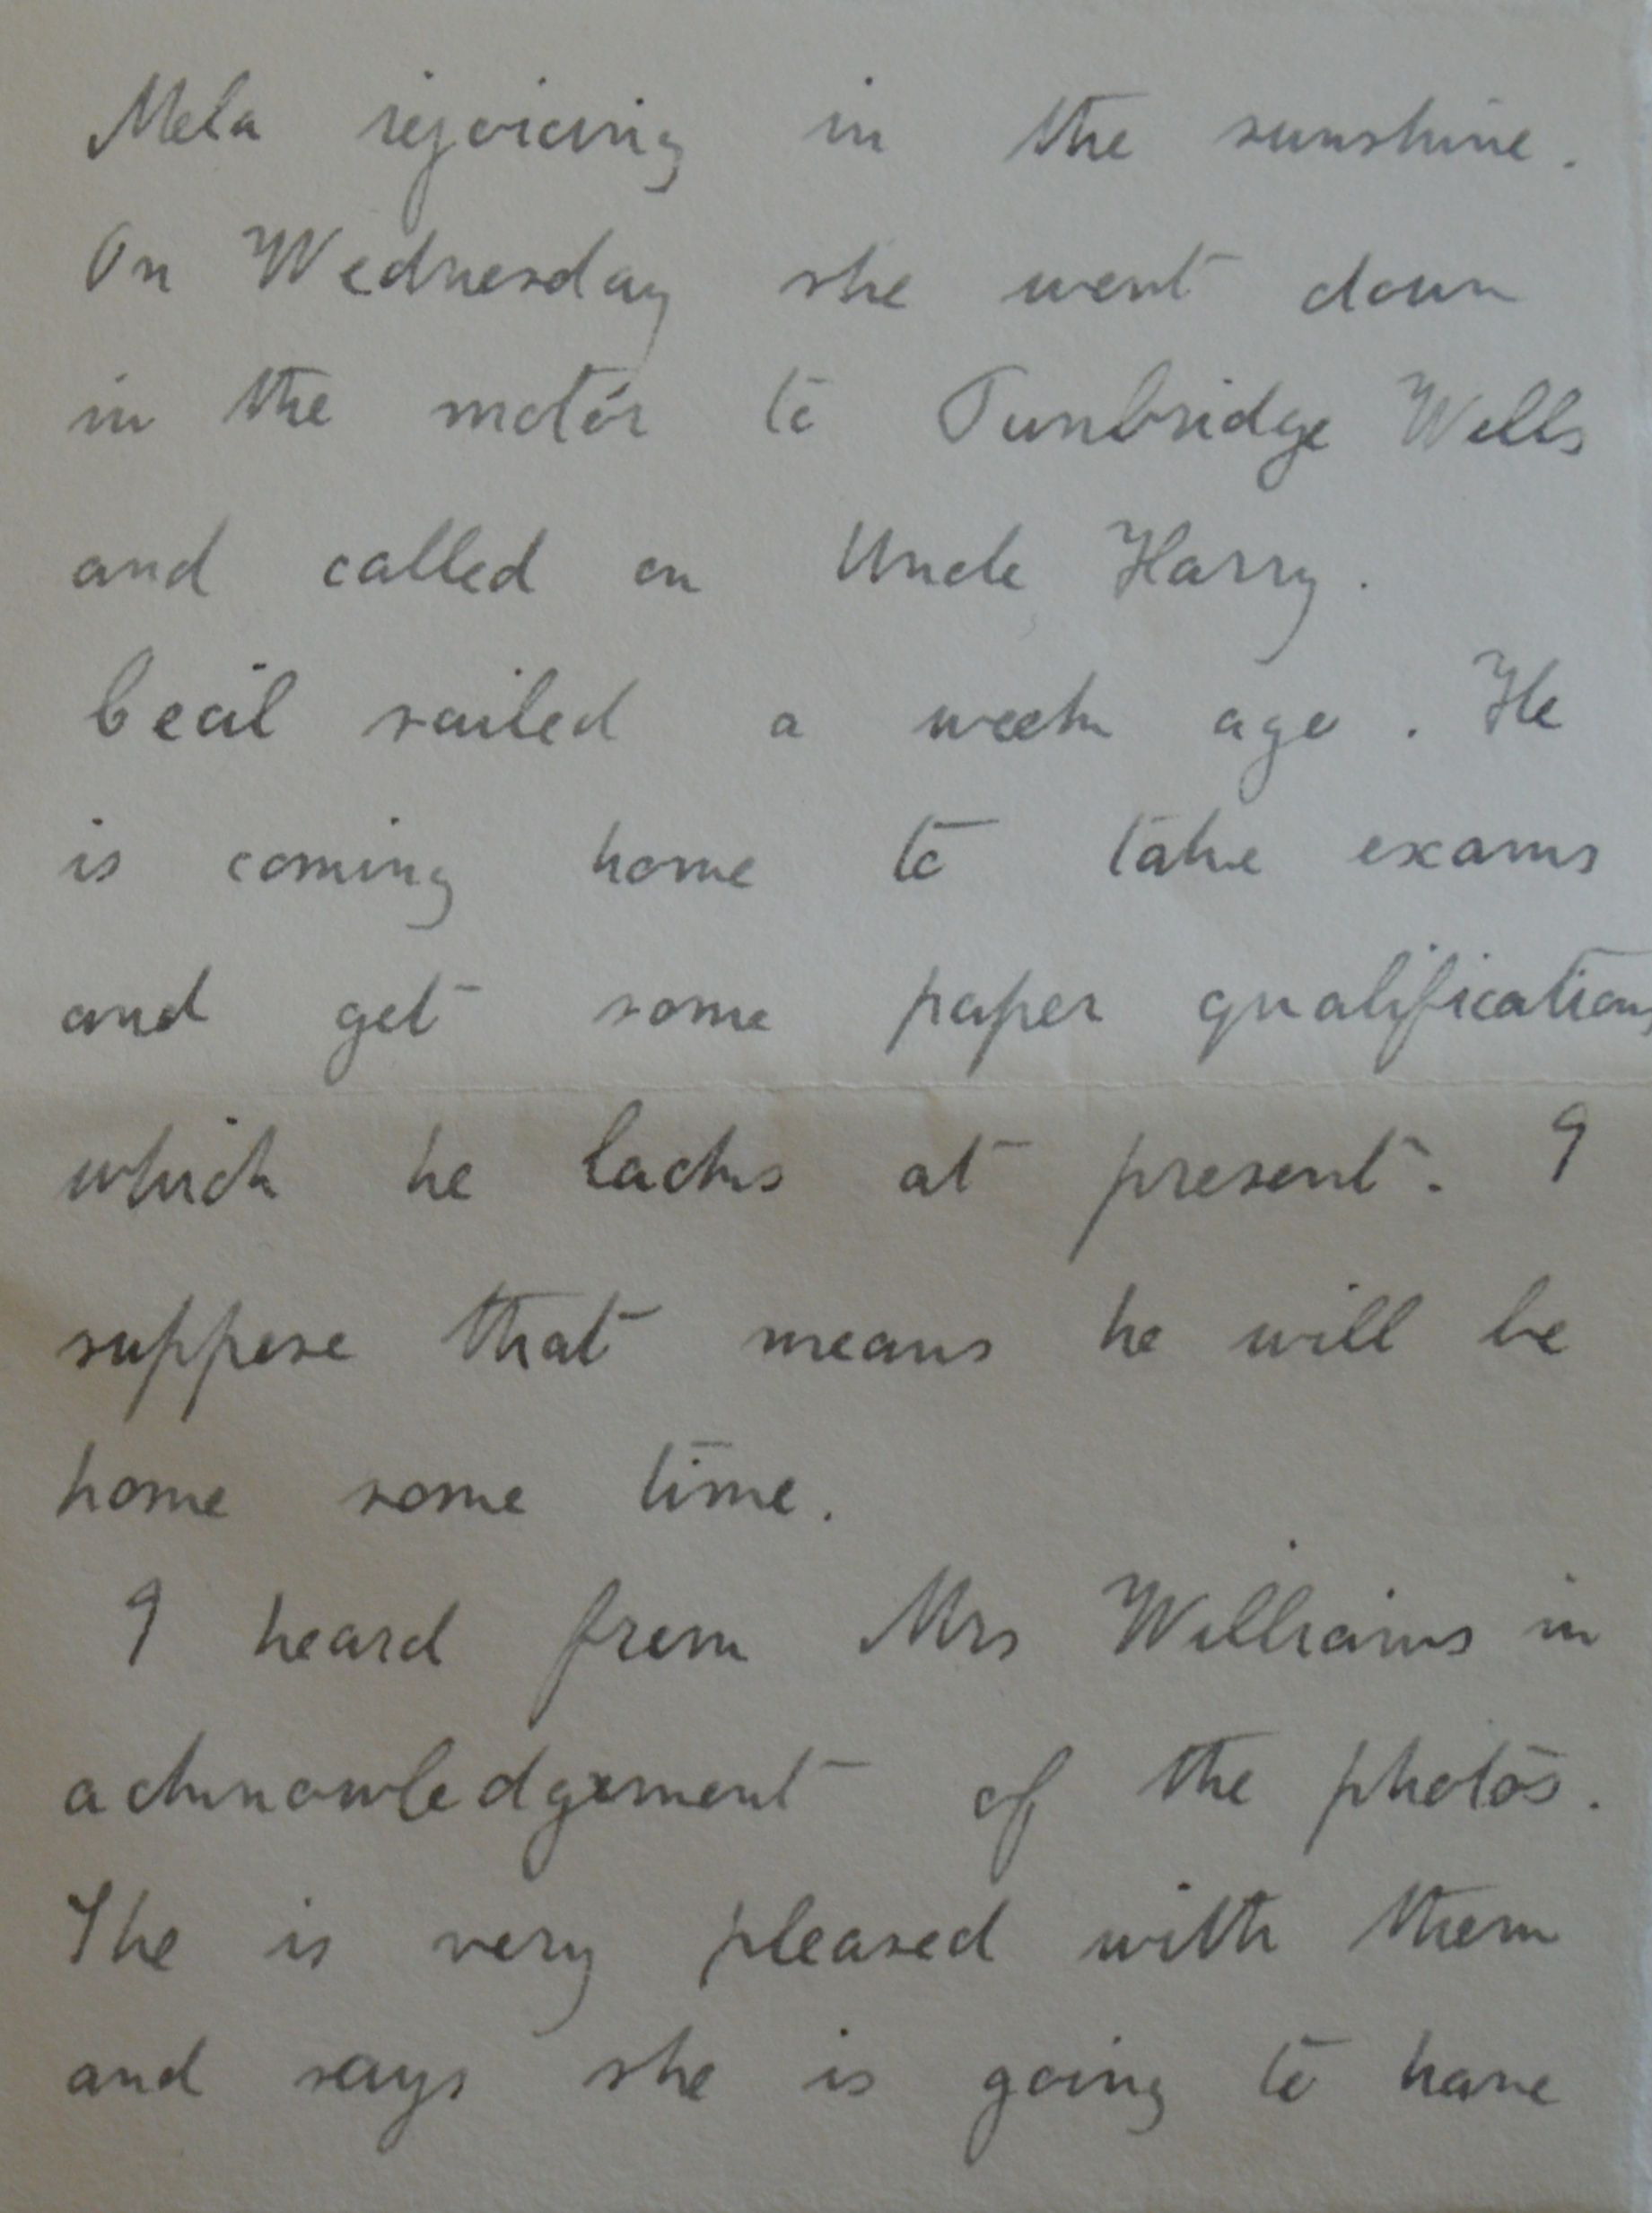 Mela rejoicing in the sunshine.
On Wednesday she went down
in the motor to Tunbridge Wells
and called on Uncle Harry.
Cecil sailed a week ago. He
is coming home to take exams
and get some paper qualifications
which he lacks at present. I
suppose that means he will be
home some time.
I heard from Mrs Williams in
acknowledgement of the photos.
She is very pleased with them
and says she is going to have